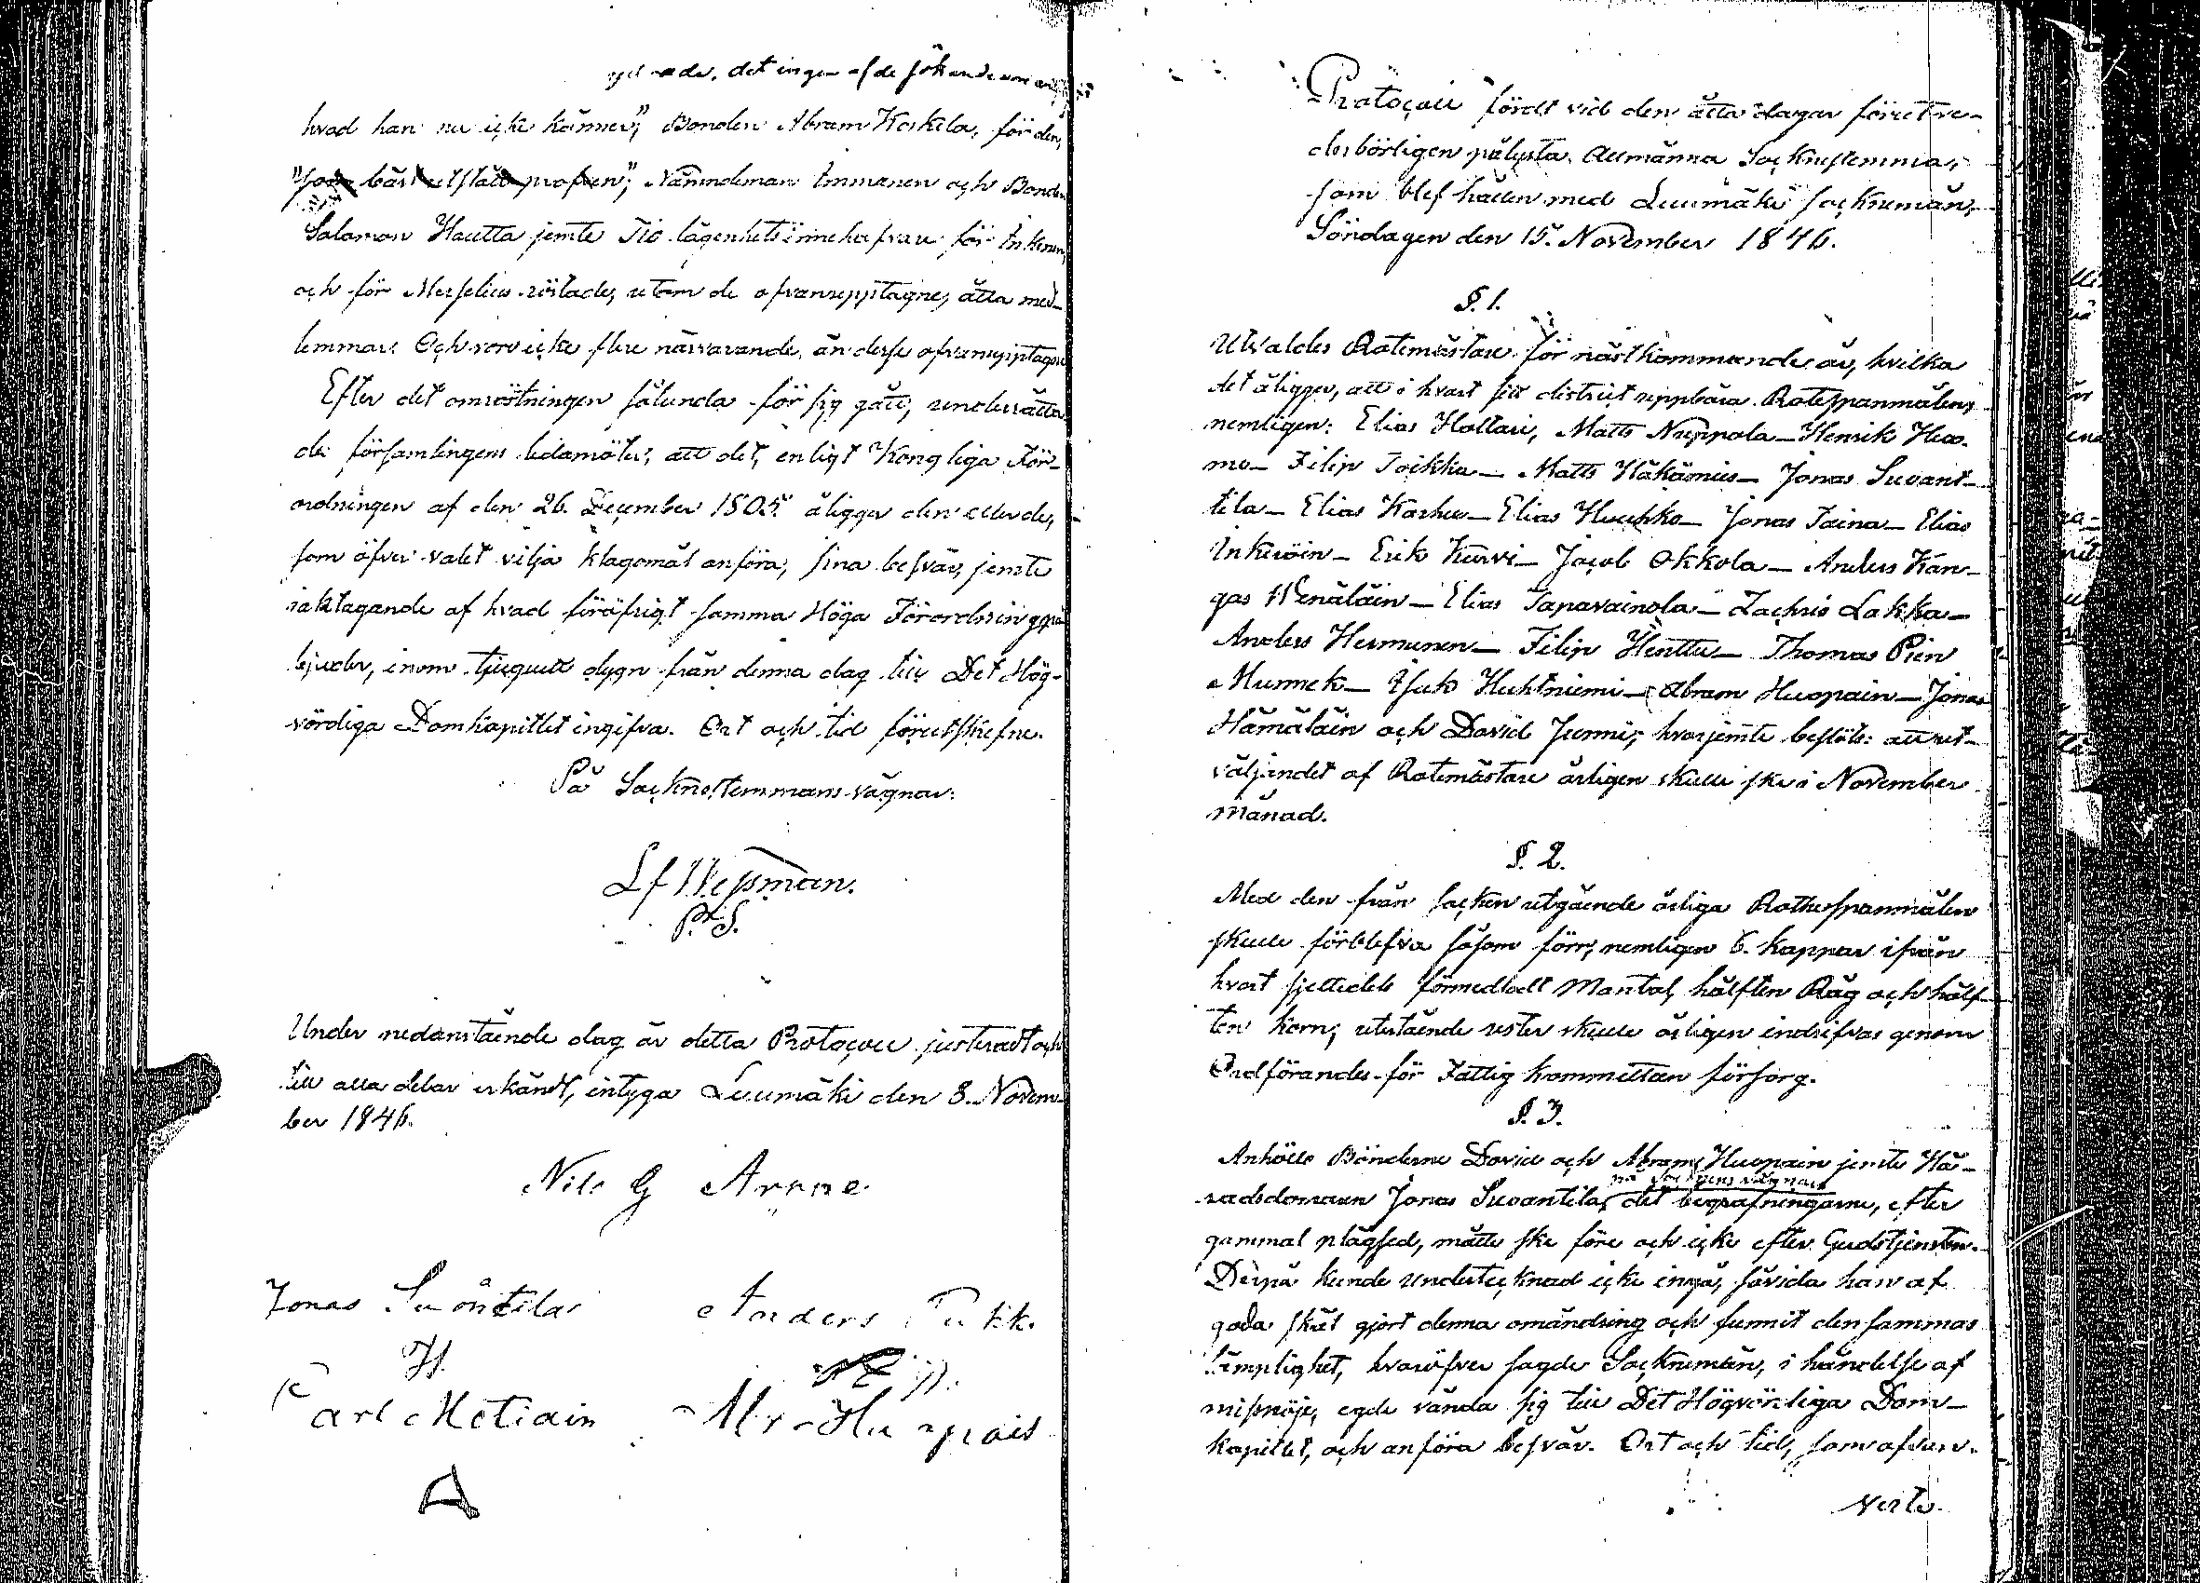 det ingen af de sökande
hvad han nu icke känner," Bonden Abram Koskela, för den,
"som bäst utstått profven"; Nämndeman Immonen och Bonden
Salamon Hautta jemte Tio lägenhetsinnehafvare för Inkinen,
och för Meselius röstade, utom de ofvanupptagne, åtta med-
lemmar. Och voro icke flere närvarande, än desse ofvanupptagne
Efter det omröstningen sålunda för sig gått, underrätta-
des församlingens ledamöter, att det, enligt Kongliga För-
ordningen af den 26. December 1805. åligger den eller de,
som öfver valet vilja klagomål anföra, sina besvär, jemte
iakttagande af hvad föröfrigt samma Höga Förordning på-
bjuder, inom tjuguett dygn från denna dag till Det Hög-
vördiga Domkapitlet ingifva. Ort och tid förutskrefne.
På Socknestemmans vägnar:
Lf Wessman.
P. S.
Under nedanstående dag är detta Protocoll justeradt och
till alla delar erkändt, intyga Luumäki den 8. Novem-
ber 1846.
Nils G
Jonas Suontila Anders
Carl
Protocoll fördt vid den åtta dagar förut ve-
derbörligen pålysta Allmänna Socknestemma,
som blef hållen med Luumäki Socknemän,
Söndagen den 15. November 1846.
§. 1.
Utvaldes Rotemästare för nästkommande år, hvilka
det åligger, att i hvart sitt district uppbära Rotespannmålen,
nemligen: Elias Hottari, Matts Nuppola – Henrik Huo-
mo – Filip Toikka – Matts Häkämies – Jonas Suvant-
tila – Elias Karhu – Elias Huuhko – Jonas Taina – Elias
Inkeröin – Erik Kurvi – Jacob Okkola – Anders Kan-
gas Wenäläin – Elias Tapavainola – Zachris Lakka –
Anders Hermunen – Filip Henttu – Thomas Pien
Munnek – Isak Huhtniemi – Abram Huopain – Jonas
Hämäläin och David Junni; hvarjemte beslöts: att ut-
väljandet af Rotemästare årligen skulle ske i November
månad.
§. 2.
Med den från Socken utgående årliga Rothespannmålen
skulle förblefva såsom förr, nemligen 6. kappar ifrån
hvart sjettedels förmedladt Mantal, hälften Råg och hälf-
ten Korn; utestående rester skulle årligen indrifvas genom
Ordförandes för Fattig kommittéen försorg.
§. 3.
Anhöllo Bönderne David och Abram Huopain jemte Hä-
på Socknens vägnar
radsdomaren Jonas Suvantila, det begrafningarne, efter
gammal plägsed, måtte ske före och icke efter Gudstjensten.
Derpå kunde undertecknad icke ingå, såvida han af
goda skäl gjort denna omändring och funnit den sammas
lämplighet, hvaröfver sagde Socknemän, i händelse af
missnöje, egde vända sig till Det Högvördiga Dom-
kapitlet, och anföra besvär. Ort och tid, som ofvan.
Verte.